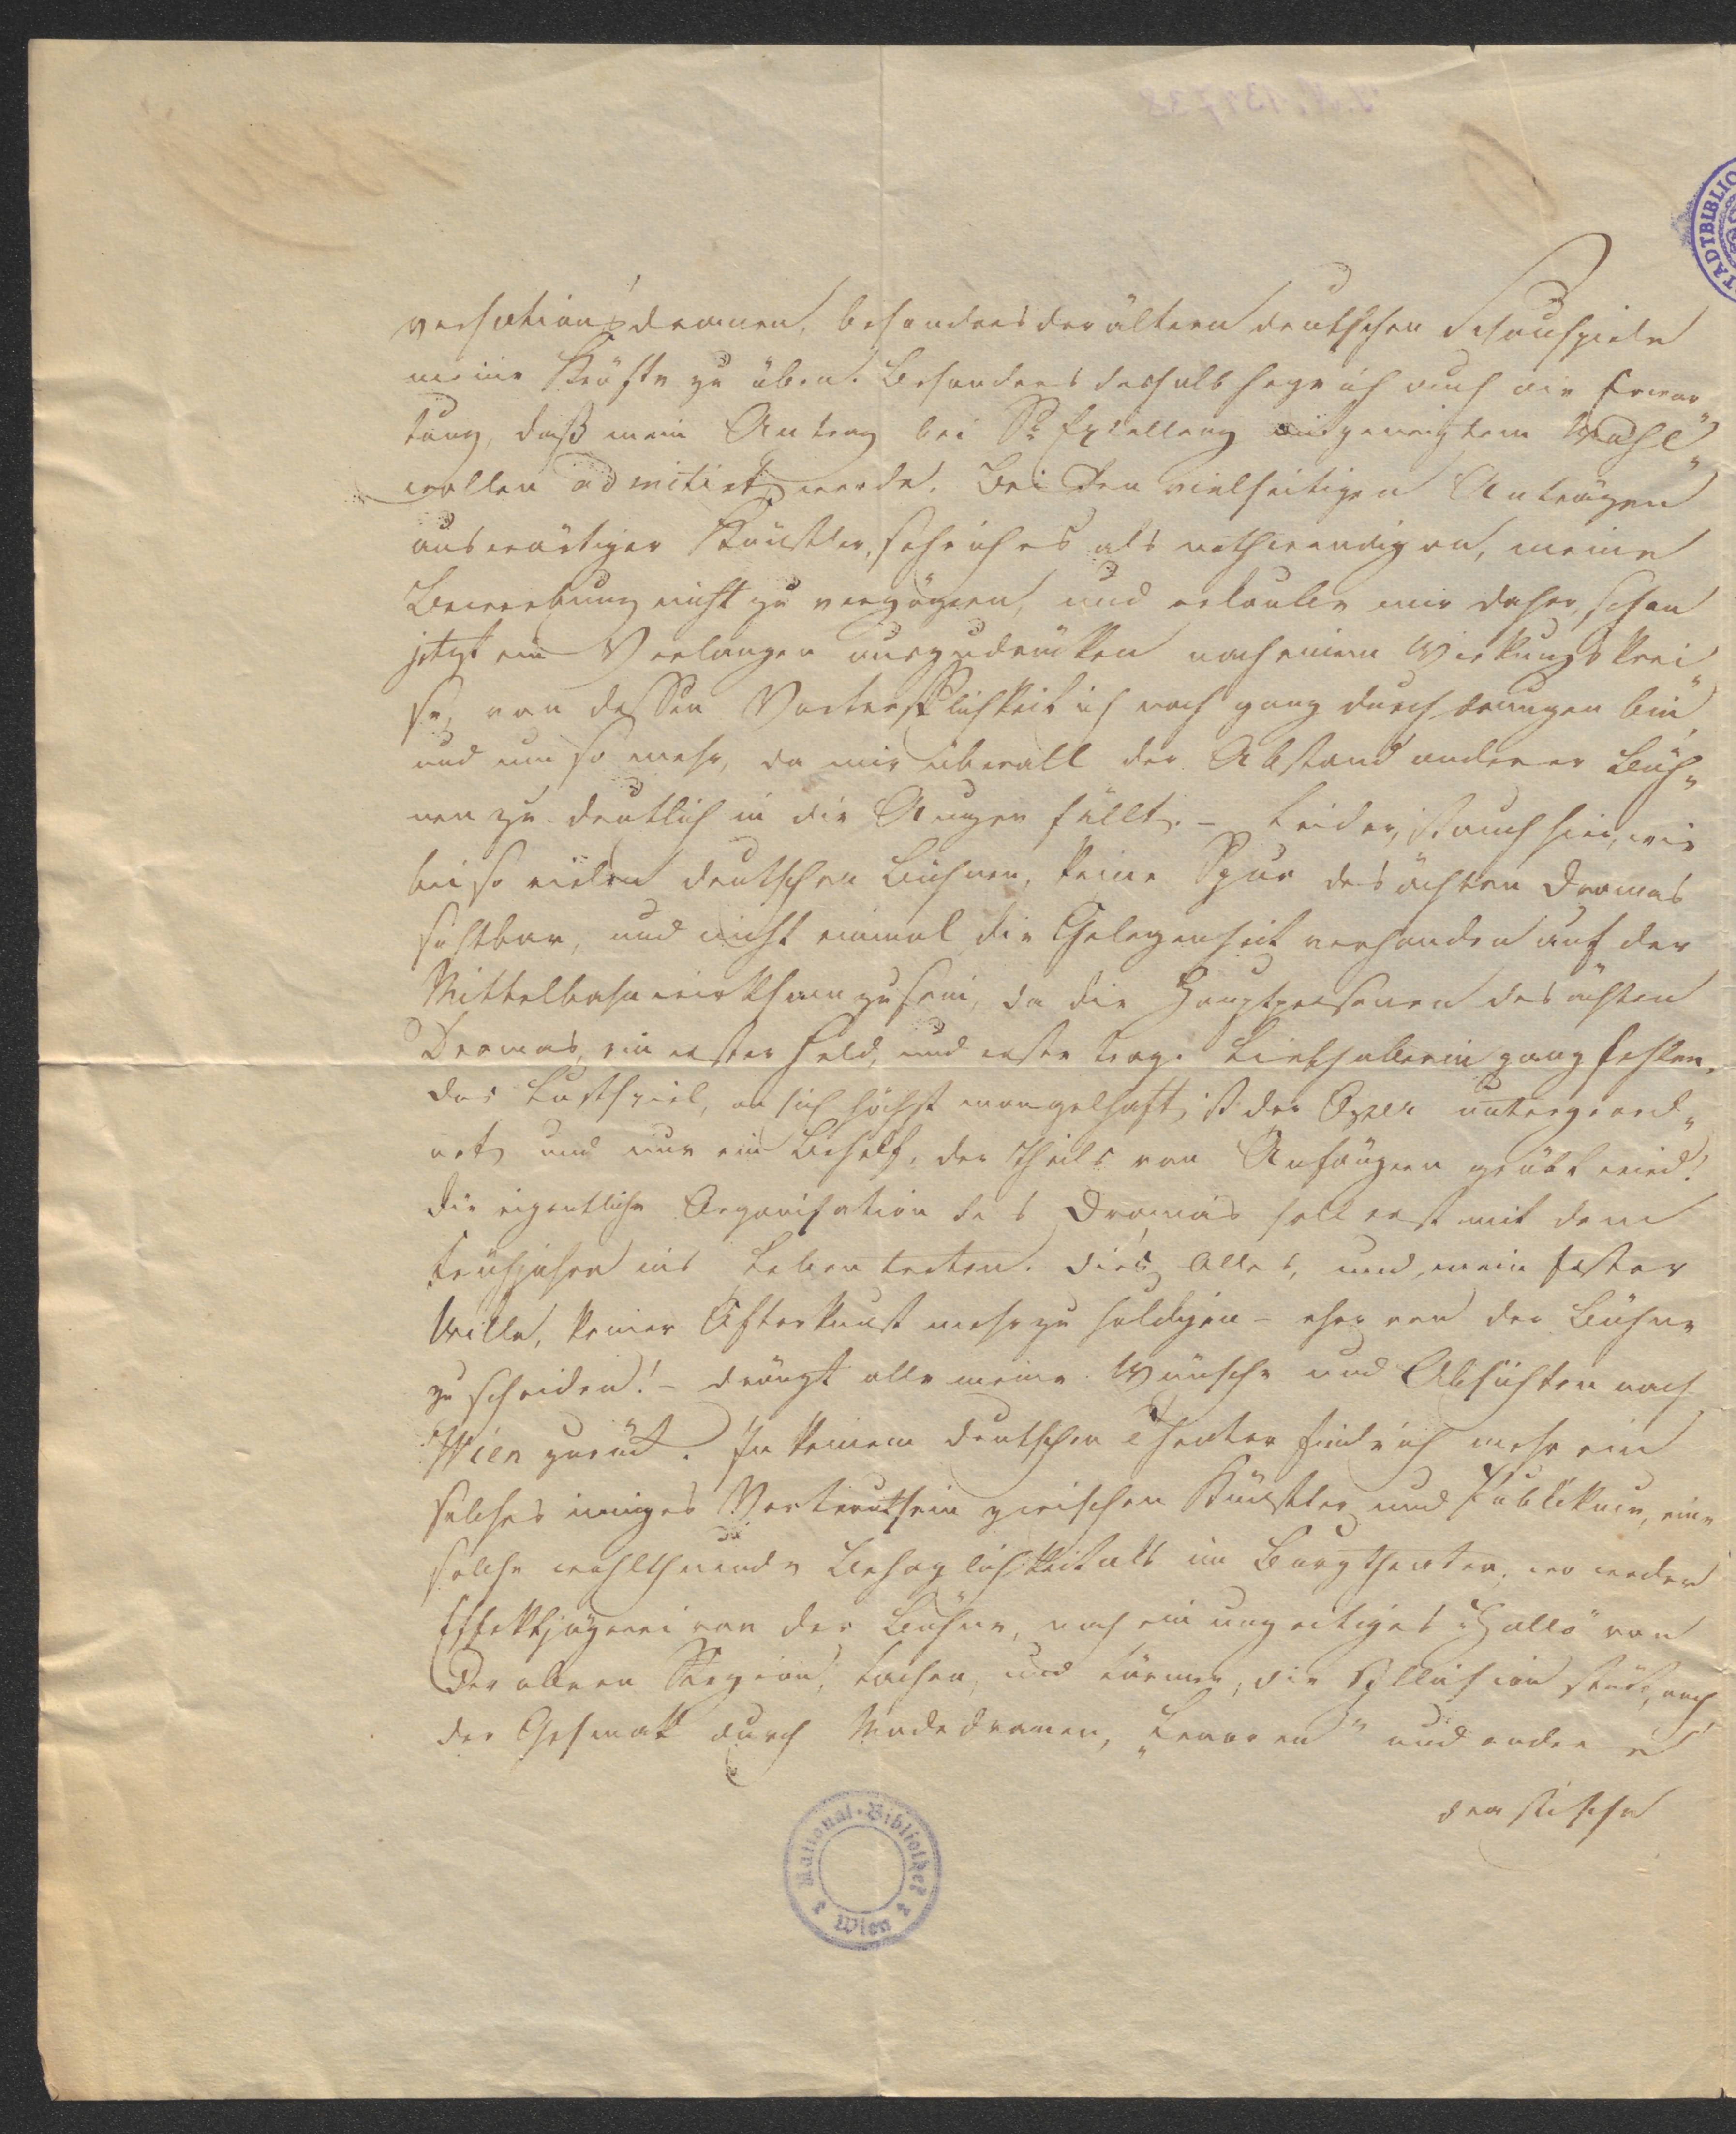 I.N. 131738
STADTBIBLIO
versationsdramen, besonders der ältern deutschen Schauspiele
meine Kräfte zu üben. Besonders deshalb hege ich auch die Erwar
tung, daß mein Antrag bei Sr Exzellenz mit geneigtem Wohl„
wollen admitirt werde. Bei den vielseitigen Anträgen
auswärtiger Künstler, sehe ich es als nothwendig an, meine
Bewerbung nicht zu verzögern, und erlaube mir daher, schon
jetzt ein Verlangen auszudrücken nach einem Wirkungskrei„
se, von dessen Vortrefflichkeit ich noch ganz durchdrungen bin
und um so mehr, da mir überall der Abstand anderer Büh„
nen zu deutlich in die Augen fällt. – Leider, ist auch hier, wie
bei so vielen deutschen Bühnen, keine Spur des ächten Dramas
sichtbar, und nicht einmal die Gelegenheit vorhanden auf der
Mittelbahn wirksam zu sein, da die Hauptpersonen des ächten
Dramas, ein erster Held, und erste trag. Liebhaberin ganz fehlen.
Das Lustspiel, an sich höchst mangelhaft, ist der Oper untergeord„
net, und nur ein Behelf, der theils von Anfängern geübt wird!
Die eigentliche Organisation des Dramas soll erst mit dem
Frühjahre ins Leben treten. Dies Alles, und mein fester
Wille, keiner Afterkunst mehr zu huldigen – eher von der Bühne
zu scheiden! – drängt alle meine Wünsche und Absichten nach
Wien zurück. In keinem deutschen Theater finde ich mehr ein
solches inniges Vertrautsein zwischen Künstler und Publikum, eine
solche wohlthuende Behaglichkeit als im Burgtheater, wo weder
Effektjägerei von der Bühne, noch ein unzeitiges „Hallo“ von
der obern Region, Lachen und Lärmen, die Illusion stört, noch
der Geschmack durch Modedramen, „Lenoren“ und andere
drastische
National-Bibliothek
Wien